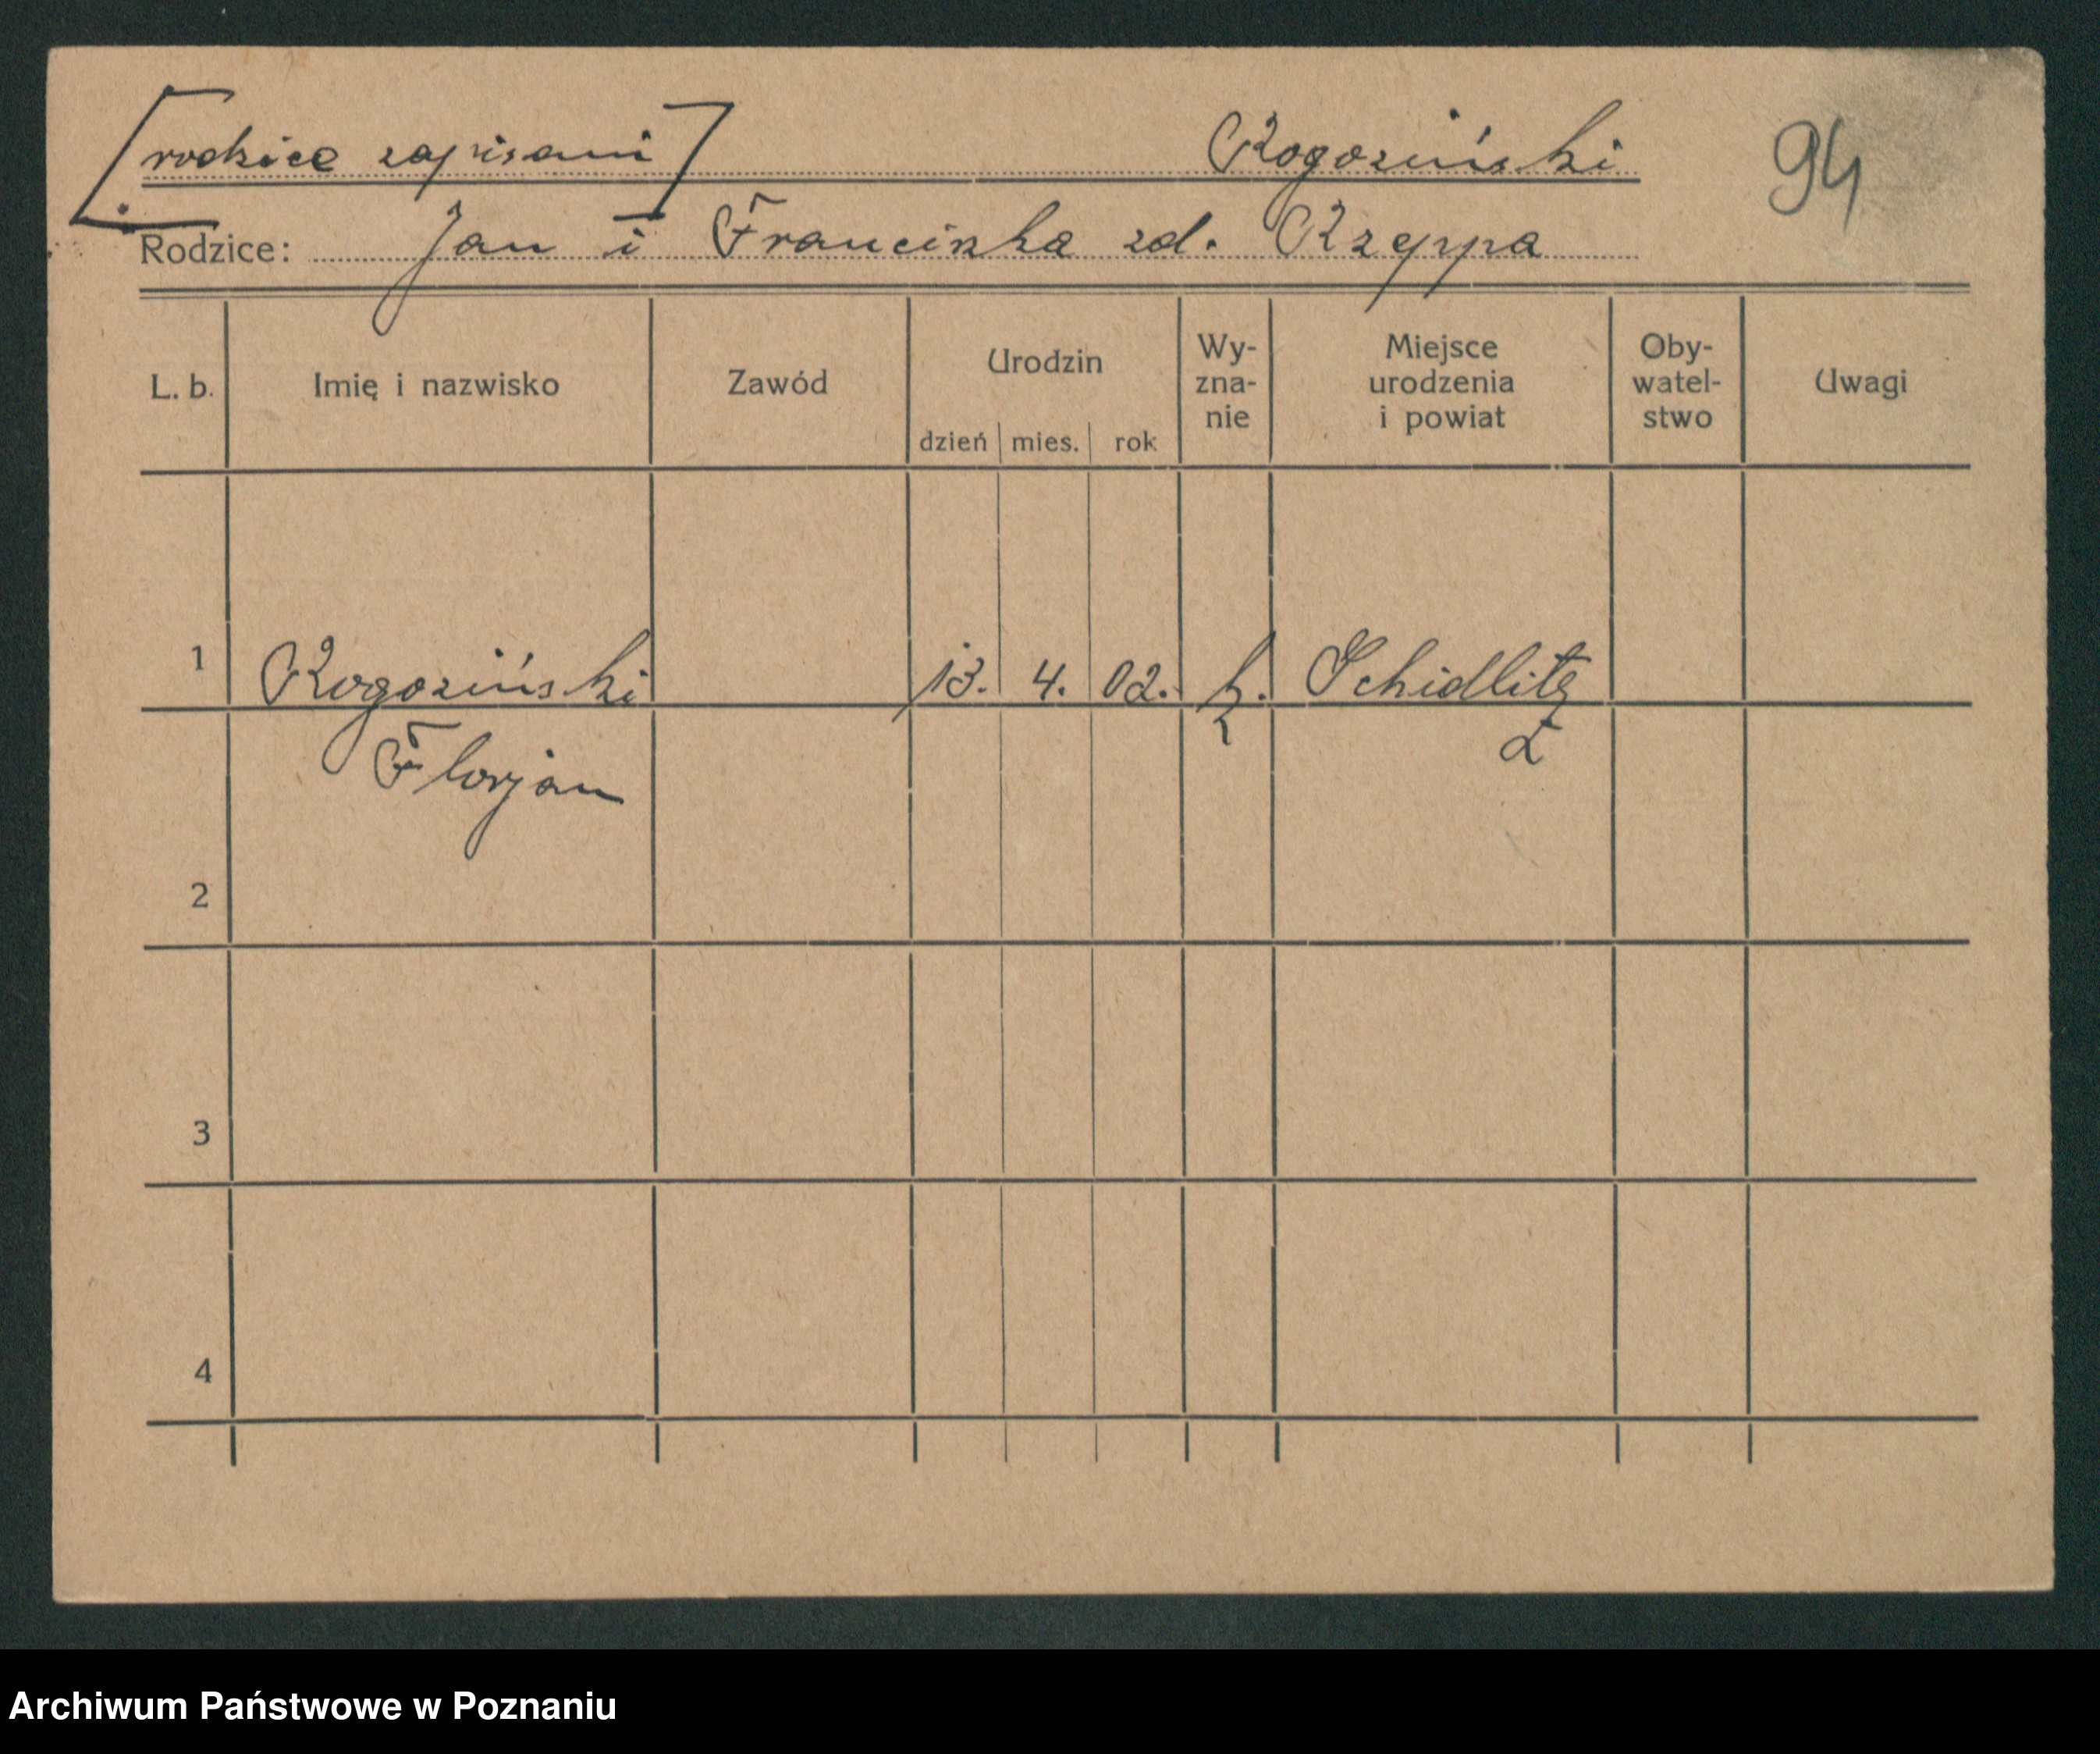 [rodzice zapisani] Rogoziński 94
Rodzice: Jan i Franciszka zd. Rzeppa
L. b. Imię i nazwisko Zawód Urodzin Wy- Miejsce Oby- Uwagi
zna- urodzenia watel-
nie i powiat stwo
dzień mies. rok
1 Rogoziński 13. 4. 02. k. Schidlitz
Florjan
2
3
4
Archiwum Państwowe w Poznaniu